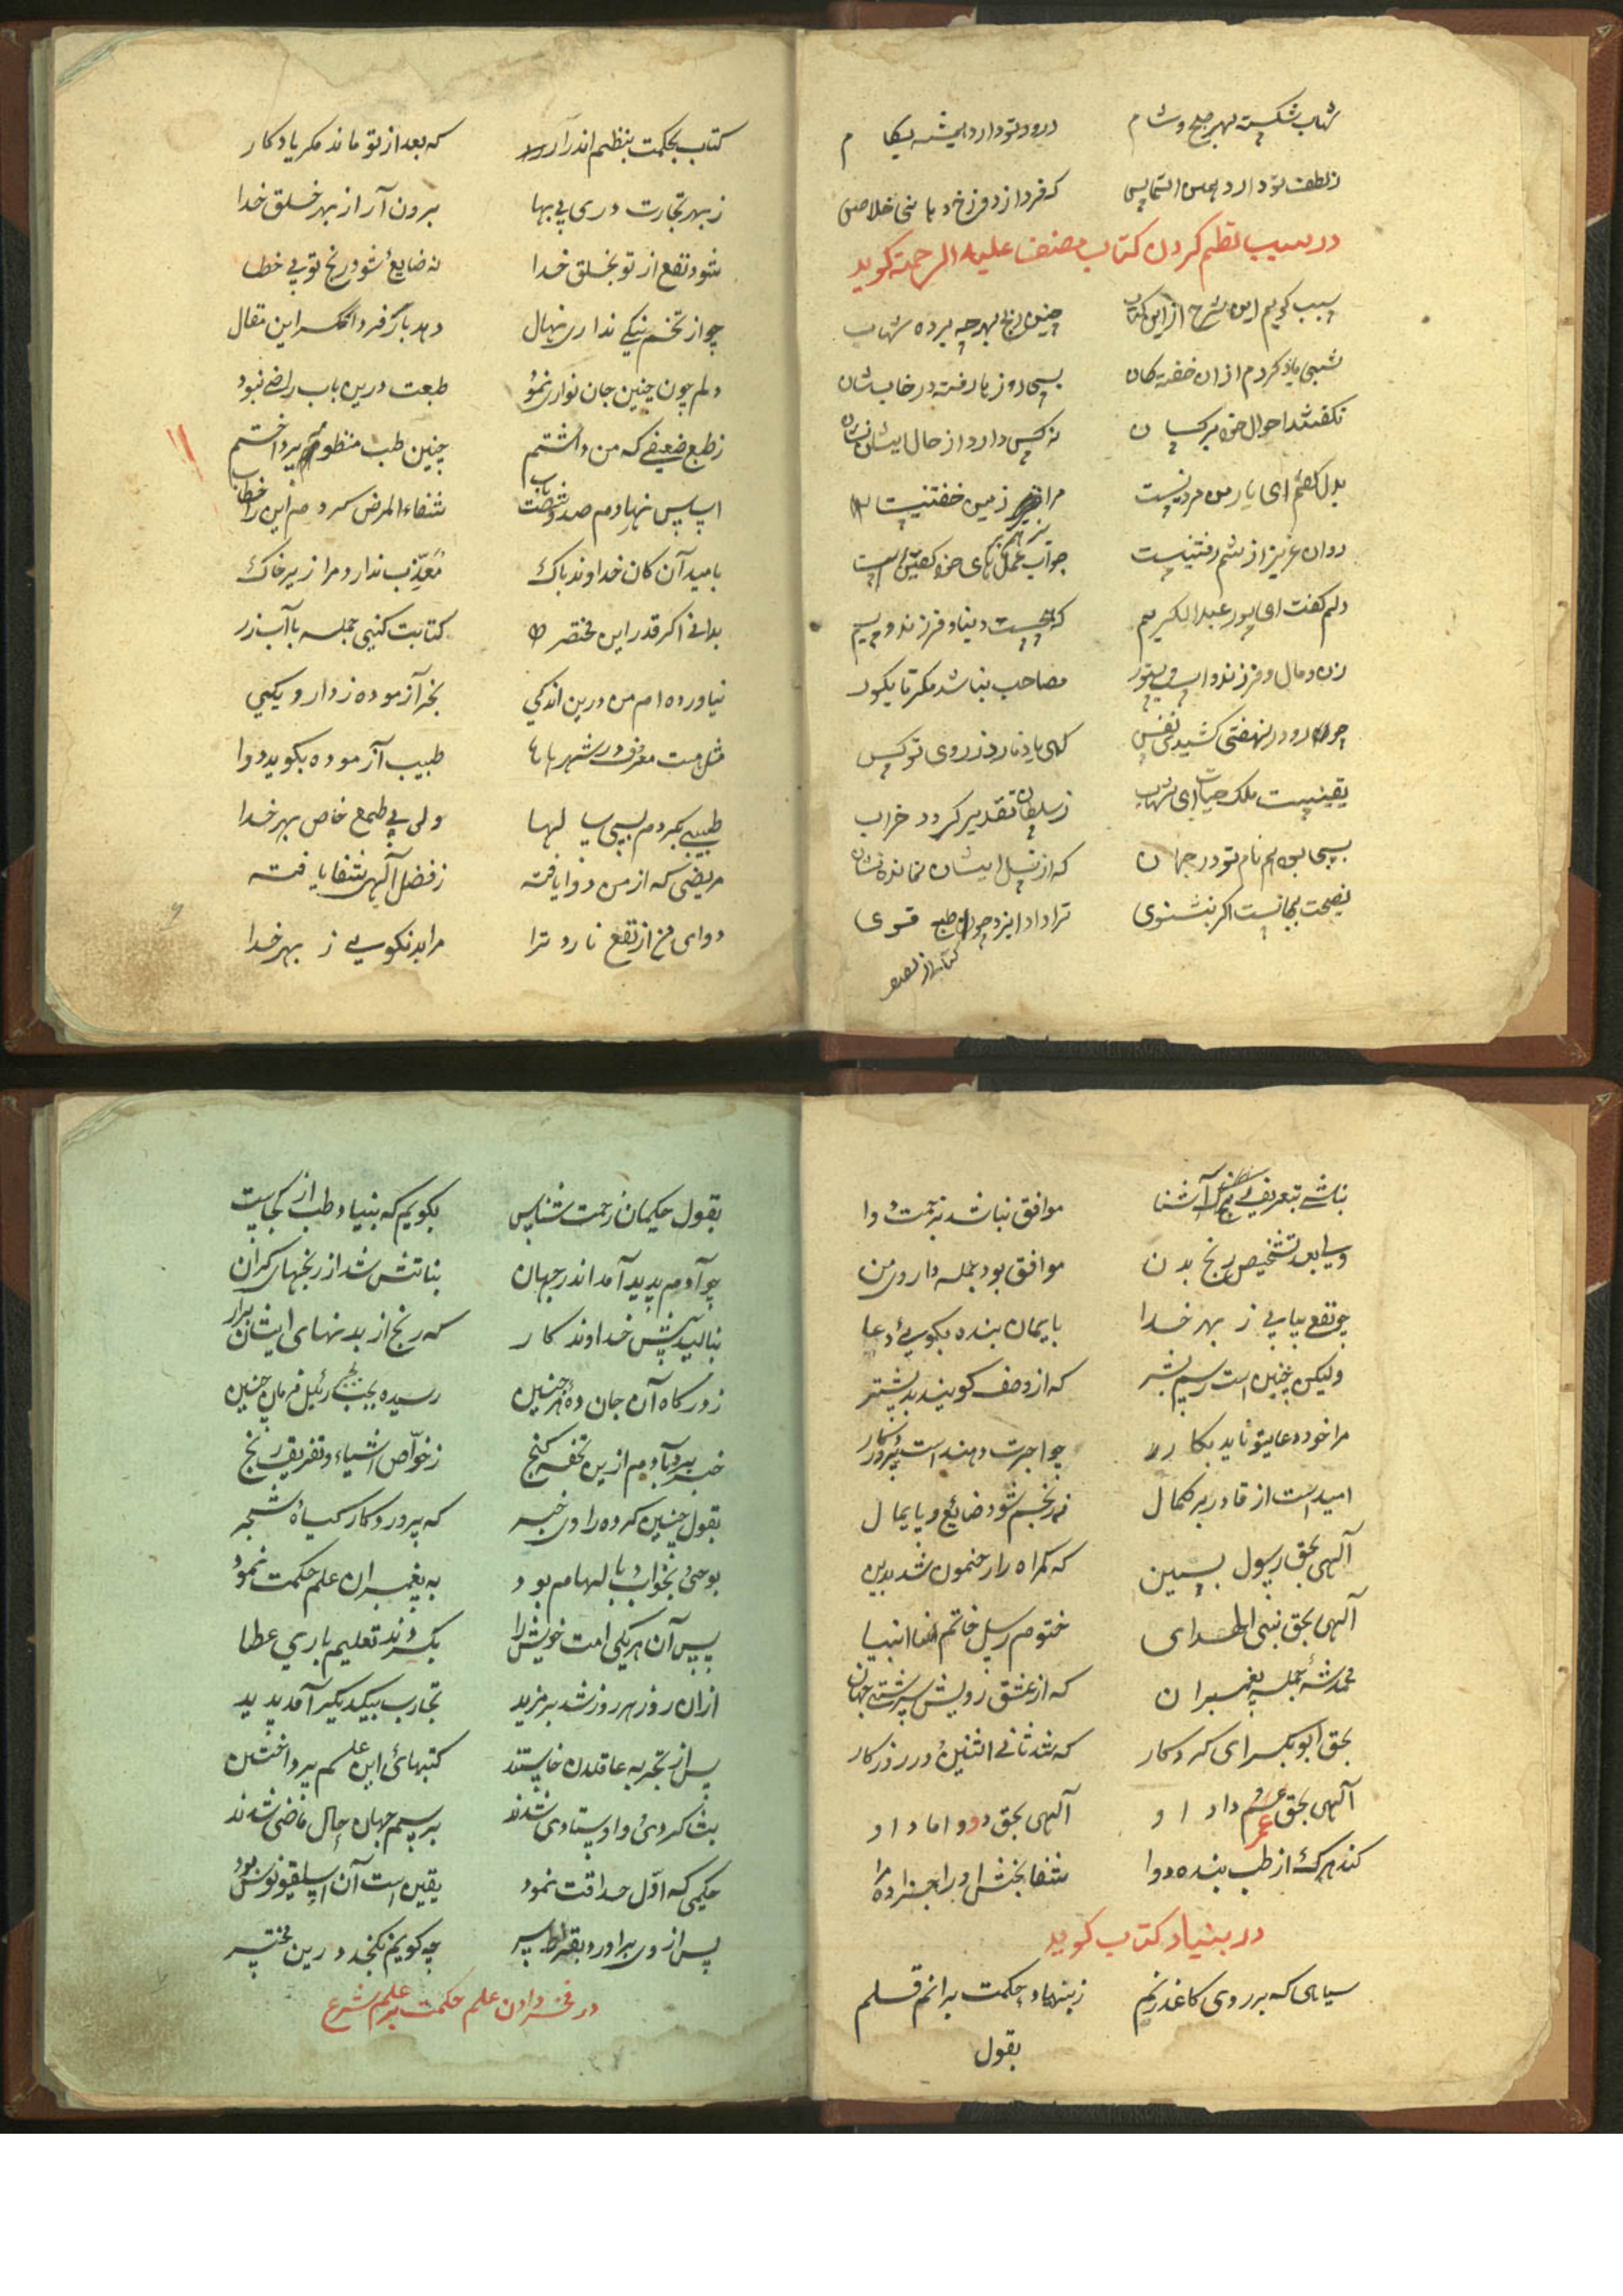 شهاب شکسته بهر صبح و شام درود تو دارد همیشه بکام
ز لطف تو دارد همین التماس که فردا ز دوزخ خود یابی خلاص
در سبب نظم کردن کتاب مصنف علیه الرحمة کوید
سبب کویم این شرح از این کتاب چنین رنج بهر چه برده شهاب
شبی یاد کردم از ان خفته کان بسی روز یا رفته در خاب شان
نکفتند احوال خود بر کسان نه کس دارد از حال ایشان نشان
بدل کفتم ای یار من مردنیست مرا زیر زمین خفتنیست
روان عزیز از تنم رفتنیست جواب عملهای خود کفتنیست
دلم کفت ای پور عبدالکریم که هیچست دینار و فرزند و سیم
زن و مال و فرزند و اسپ و ستور مصاحب نباشد مکر تا بکور
چو در نهفتی کشیدی نفس کهی یاد نارد ز روی تو کس
یقینیست ملک حیات ای شهاب ز سلطان تقدیر کردد خراب
بسی بود هم نام تو در جهان که از نسل ایشان نمانده نشان
نصیحت بجانست اکر بشنوی ترا داد ایزد چون طبع قوی
کتاب از
کتاب بحکمت بنظم اندر آر که بعد از تو ماند مکر یادکار
ز بهر تجارت دری پی بها برون آر از بهر خلق خدا
شود نفع از تو بخلق خدا نه ضایع شود رنج تو بی خطا
چو از تخم نیکی نداری نهال دهد بار فردا نکر این مقال
دلم چون چنین جان نوازی نمود طبعت درین باب راضی نبود
ز طبع ضعیفی که من داشتم چنین طب منظوم پرداختم
اساس نهادم صد و شصت باب شفاء المرض کردم این را خطاب
بامید آن کان خداوند پاک معذب ندارد مرا زیر خاک
بدانی اکر قدر این مختصر کتابت کنی جمله با آب زر
نیاورده ام من درین اندکی بجز آزموده ز دارو یکی
مثل هست معروف در شهرها طبیب آزموده بکوید دوا
طبیبی بکردم بسی سالها ولی بی طمع خاص بهر خدا
مریضی که از من دوا یافته ز فضل آلهی شفا یافته
دوای من از نفع نارد ترا مرا بد نکویی ز بهر خدا
نباشد بتعریف رنج آشنا موافق نباشد بزحمت دوا
و یا بعد تشخیص رنج بدن موافق بود جمله داروی من
چو نفع بیابی ز بهر خدا بایمان بنده بکویی دعا
ولیکن چنین است رسم بشر که از وصف کویند بد بیشتر
مرا خود دعایتو ناید بکار چو اجرت دهنداست پروردکار
امید است از قادر بر کمال نه رنجم شود ضائع و پایمال
آلهی بحق رسول بسین که کمراه را رهنمون شد بدین
آلهی بحق نبی الهدای ختوم رسل خاتم انبیا
محمد شه جمله پیغمبران که از عشق رویش سرشته جهان
بحق ابوبکر ای کردکار که شد ثانی اثنین در روزکار
آلهی بحق عمر داد او آلهی بحق دو داماد او
کند هرکه از طب بنده دوا شفا بخش او را جزا ده مرا
در بنیاد کتاب کوید
سیاهی که بر روی کاغذ زنم ز بنیاد حکمت برانم قلم
بقول
بقول حکیمان زحمت شناس بکویم که بنیاد طب از کجاست
چو آدم پدید آمد اندر جهان بنا تنش شد از رنجهای کران
بنالید پیش خداوند کار که رنج از بدنهای ایشان برآر
ز درکاه آن جان ده هر چنین رسیده بجبرئیل فرمان چنین
خبر بر بآدم ازین تحفه کنج ز خواص اشیاء و تفریق رنج
بقول چنین کرده راوی خبر که پروردکار کیاه شجر
بوحی بخواب با بالهام بود به پیغمبران علم حکمت نمود
پس آن هر یکی امت خویش را بکردند تعلیم باری عطا
ازان روز هر روز شد بر مزید تجارب بیکدیکر آمد پدید
پس از تجربه عاقلان خاستند کتبهای این علم پرداختن
بشاکردی و اوستادی شدند برسم جهان حال ماضی شدند
حکیمی که اول حداقت نمود یقین است آن اسپلقینوس بود
پس از وی برادر و بقراط پسر چه کویم نکنجد درین مختصر
در فخر دادن علم حکمت بر علم شرع